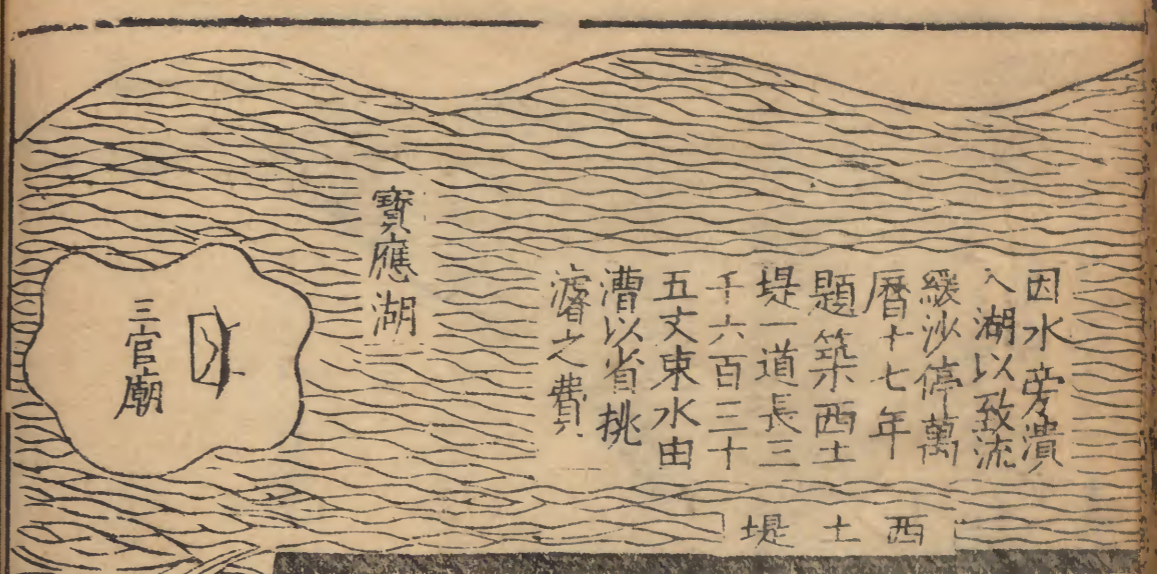 因水旁潰
入湖以致流
緩沙停萬
曆十七年
題築西土
堤一道長三
千六百三十
五丈束水由
漕以省挑
濬之費
寶應湖
三官廟
西土堤